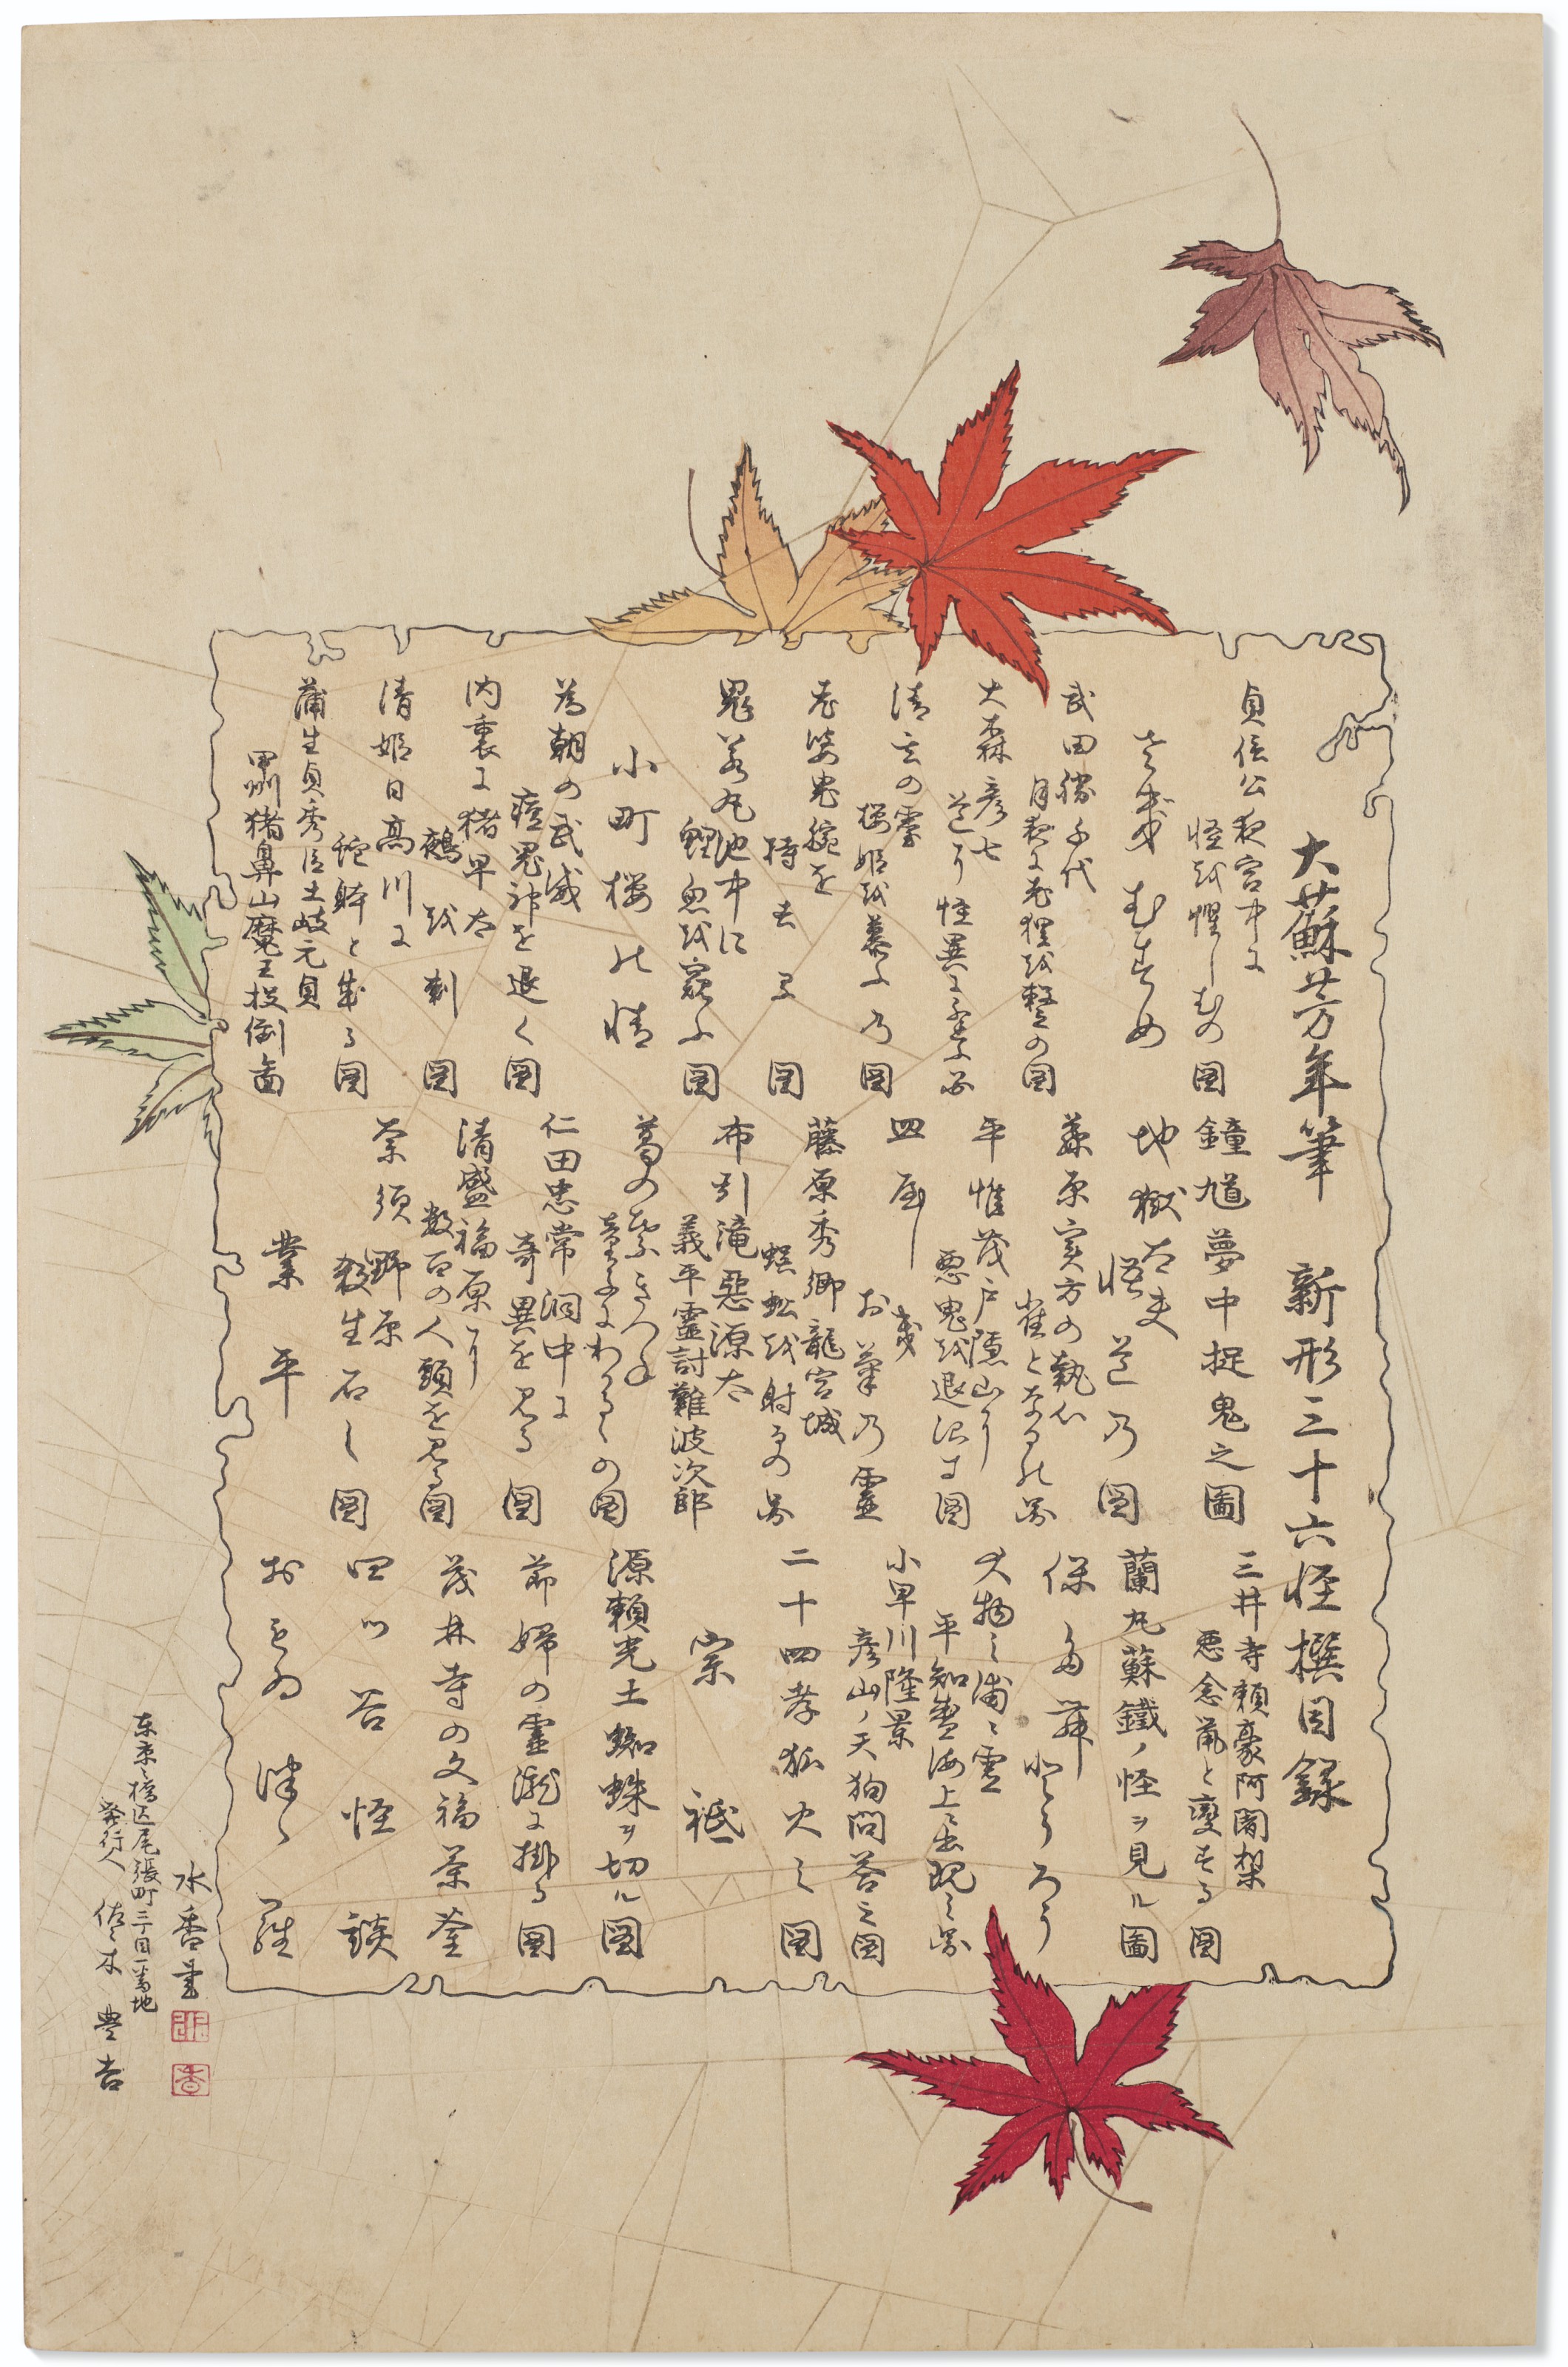 大蘇芳年筆 新形三十六怪撰目録
貞信公夜宮中に
怪を懼しむの図
さぎむすめ
武田勝千代
月夜に老狸を撃の図
大森彦七
道に怪異に
清玄の霊
桜姫を慕ふ乃図
老婆鬼腕を
持去る図
鬼若丸池中に
鯉魚を窺ふ図
小町桜の情
為朝の武威
痘鬼神を退く図
内裏に猪早太
鵺を刺図
清姫日高川に
蛇躰と成る図
蒲生貞秀臣土岐元貞
甲州猪鼻山魔王投倒図
鐘馗夢中捉鬼之圖
地獄太夫
悟道乃図
藤原実方の執心
雀となるの図
平惟茂戸隠山に
悪鬼を退治す図
皿やしき
お菊乃霊
藤原秀郷龍宮城
蜈蚣を射るの図
布引滝悪源太
義平霊討難波次郎
葛の葉きつね
童子にわかるゝの図
仁田忠常洞中に
奇異を見る図
清盛福原に
数百の人頭を見る図
那須野原
殺生石之図
業平
三井寺頼豪阿闍梨
悪念鼠と変ずる図
蘭丸蘇鐵ノ怪ヲ見ル圖
ほたむとうろう
大物之浦ニ霊
平知盛海上ニ出現之図
小早川隆景
彦山ノ天狗問答之図
二十四孝狐火之図
宗祇
源頼光土蜘蛛ヲ切ル図
節婦の霊瀧に掛る図
茂林寺の文福茶釜
四ツ谷怪談
おもゐつゝら
水香筆
水
香
東京々橋区尾張町三丁目一番地
発行人 佐々木豊吉